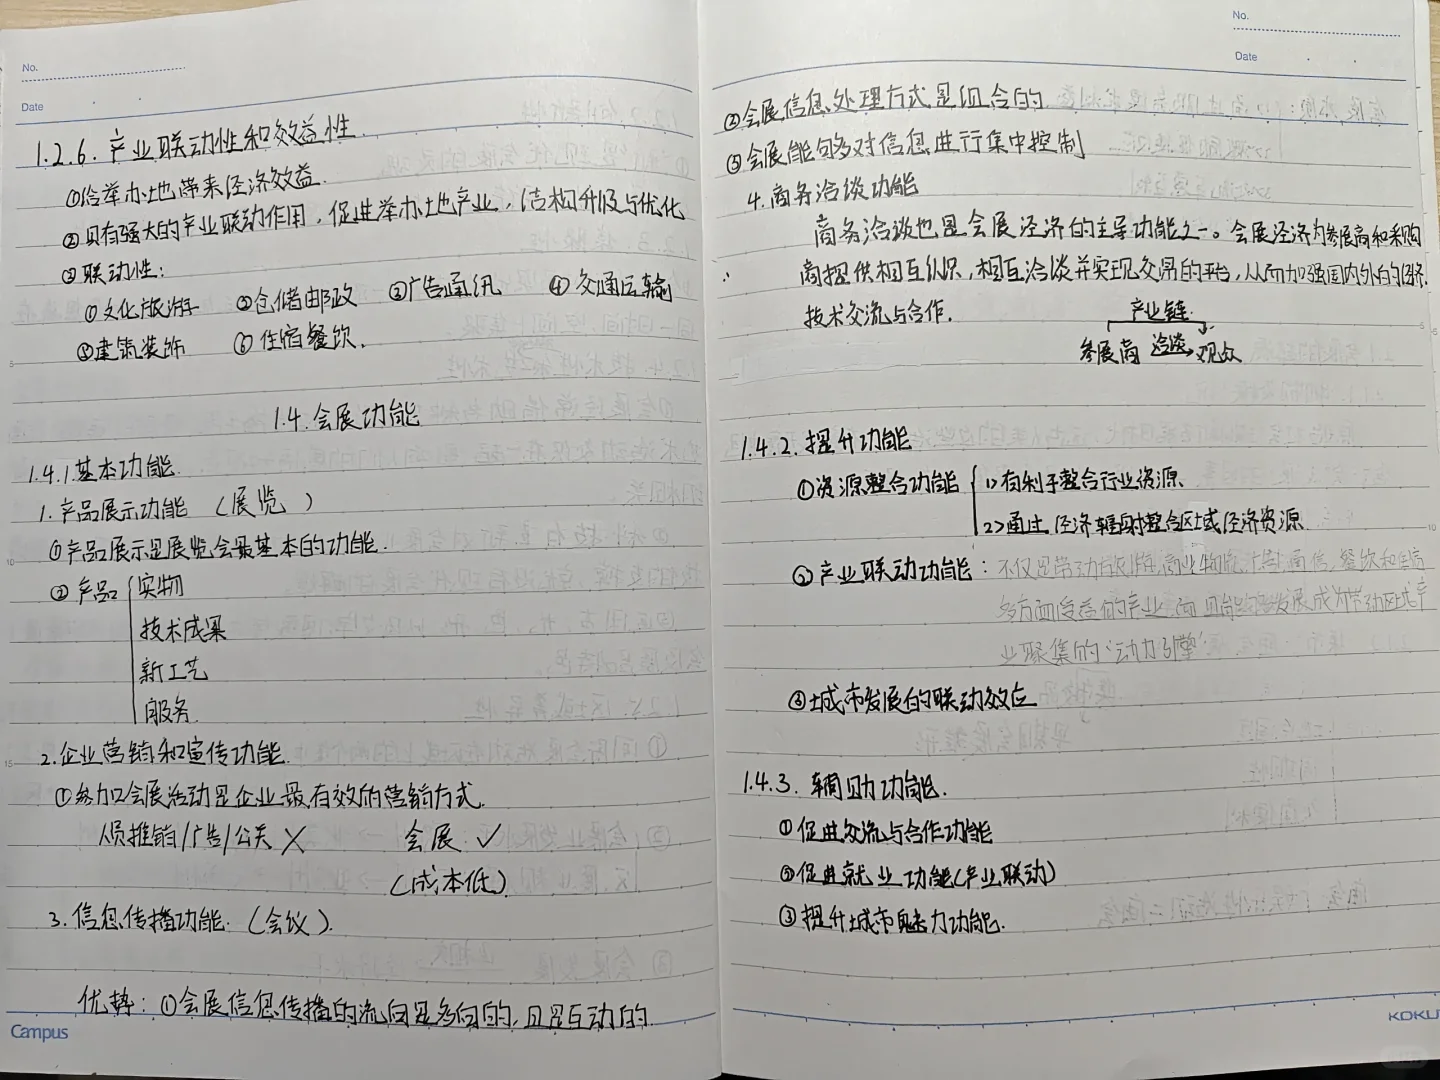 No.
Date
1.2.6. 产业联动性和效益性
①给举办地带来经济效益.
②具有强大的产业联动作用，促进举办地产业，结构升级与优化
③联动性：
①文化旅游 ②仓储邮政 ③广告通讯 ④交通运输
⑤建筑装饰 ⑥住宿餐饮.
1.4.会展功能
1.4.1基本功能.
1.产品展示功能（展览）
①产品展示是展览会最基本的功能.
②产品 实物
技术成果
新工艺
服务.
2.企业营销和宣传功能.
①参加会展活动是企业最有效的营销方式.
人员推销/广告/公关 ✗ 会展 ✓
（成本低）
3.信息传播功能：（会议）.
优势：①会展信息传播的流向是多向的，且是互动的.
Campus
No.
Date
②会展信息处理方式是组合的
③会展能够多对信息进行集中控制
4.商务洽谈功能
商务洽谈也是会展经济的主导功能之一。会展经济为参展商和采购
商提供相互认识，相互洽谈并实现交易的平台，从而加强国内外的经济.
技术交流与合作.
产业链.
参展商 洽谈→ 观众
1.4.2.提升功能
①资源整合功能 1>有利于整合行业资源.
2>通过经济辐射整合区域经济资源
②产业联动功能：不仅是带动旅游，商业，物流，广告，通信，餐饮和住宿
多方面受益的产业，而且能发展成为带动区域产
业聚集的“动力引擎”
③城市发展的联动效应
1.4.3.辅助功能.
①促进交流与合作功能
②促进就业功能(产业联动)
③提升城市魅力功能.
KOKU